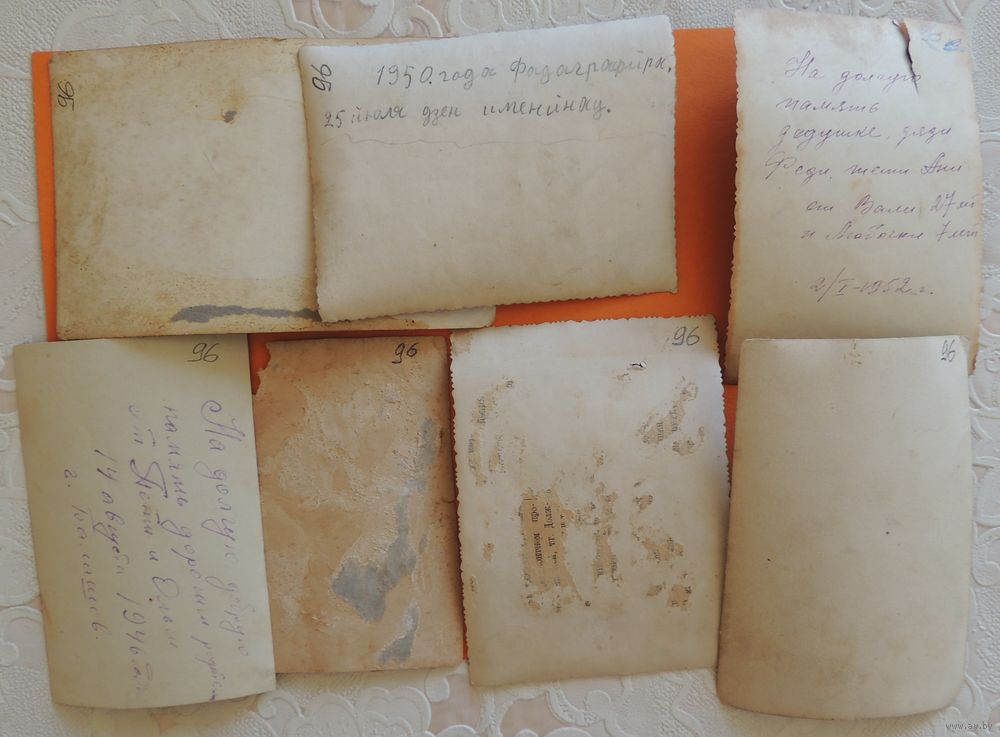 96
96
1950.года Фадаграфирк,
25 июля дзен именинку.
На долгую
память
дедушке, дяди
Феди, тети Ани
от Вали 27 лет
и Любочки 7 лет
2/I-1952г.
96
На долгую добрую
память дорогим
от Пети и Ольги
14 августа 1946
г. Балашов.
96
96
96
www.ay.by